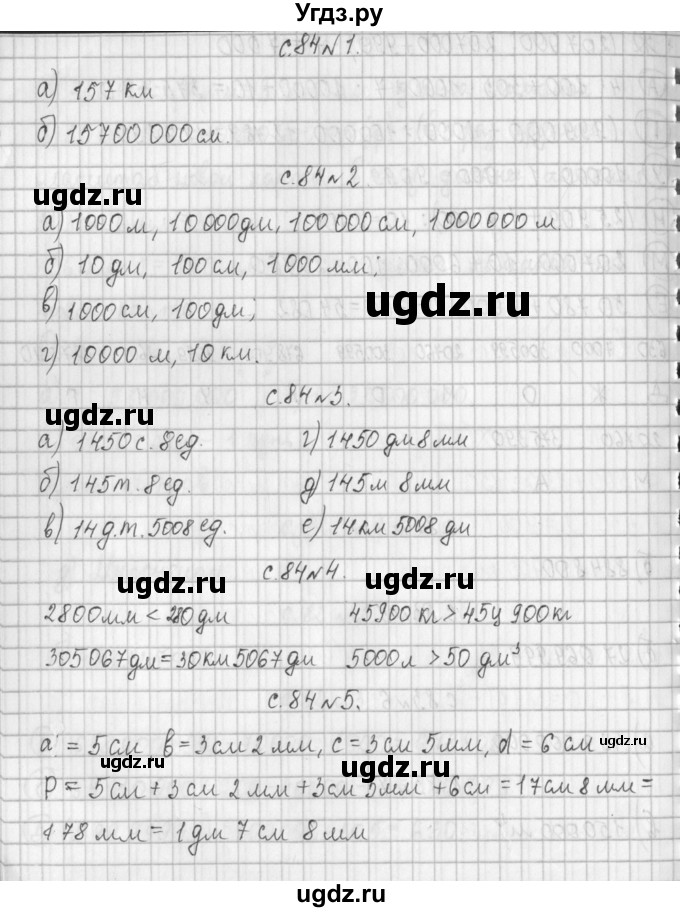 Угдз.ру
с.84 N 1.
а) 157 км
б) 15700 000 см.
с.84 N 2.
ugdz.ru
а) 1000 м, 10 000 дм, 100 000 см, 1000 000 м
б) 10 дм, 100 см, 1000 мм;
ugdz.ru
в) 1000 см, 100 дм;
г) 10000 м, 10 км.
с.84 N 3.
ugdz.ru
а) 1450 с. 8 ед. г) 1450 дм 8 мм
ugdz.ru
б) 145 т. 8 ед. д) 145 м 8 мм
в) 14 д.т. 5008 ед. е) 14 км 5008 дм
с.84 N 4.
ugdz.ru ugdz.ru
2800 мм < 280 дм 45900 кг > 45 ц 900 кг
305 067 дм = 30 км 5067 дм 5000 л > 50 дм³
с.84 N 5.
а = 5 см в = 3 см 2 мм, с = 3 см 5 мм, d = 6 см
ugdz.ru ugdz.ru
Р = 5 см + 3 см 2 мм + 3 см 5 мм + 6 см = 17 см 8 мм =
ugdz.ru
178 мм = 1 дм 7 см 8 мм
ugdz.ru